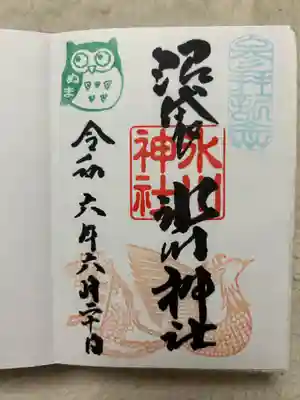 参拝記念
沼袋氷川神社
氷川
神社
令和六年六月二十日
ぬま